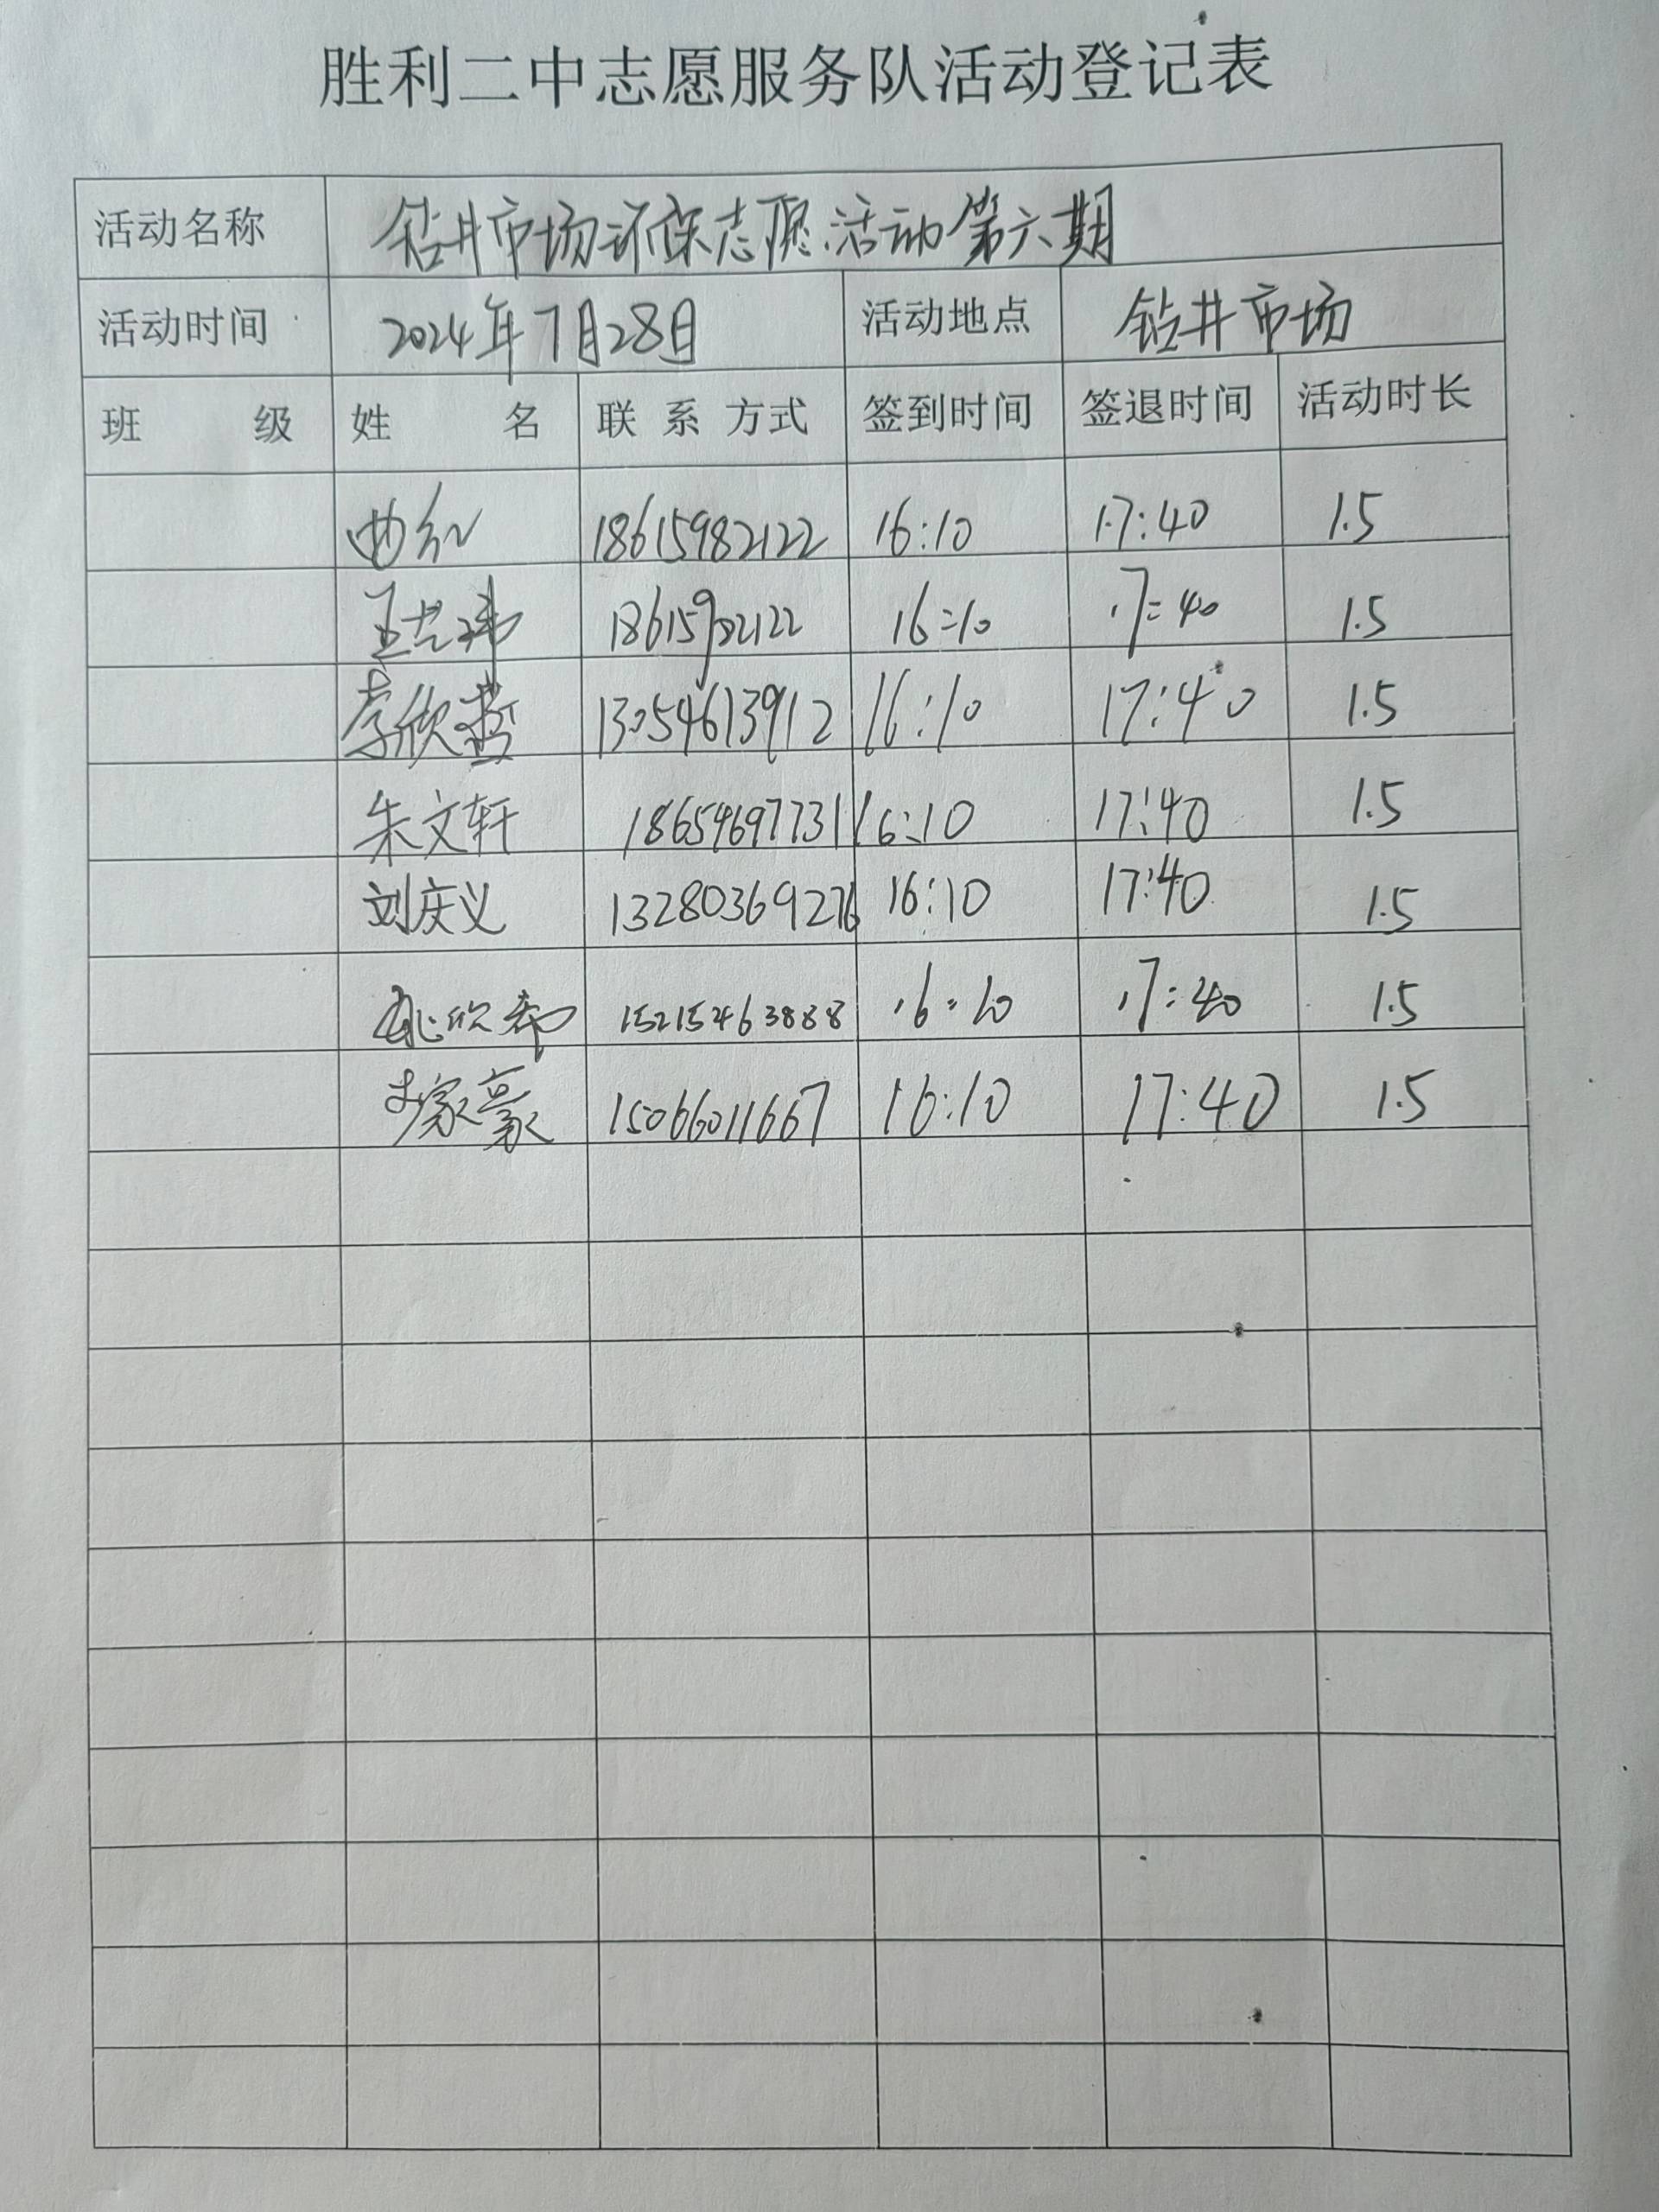 胜利二中志愿服务队活动登记表
活动名称 钻井市场环保志愿活动第六期
活动时间 2024年7月28日 活动地点 钻井市场
班 级 姓 名 联系方式 签到时间 签退时间 活动时长
曲红 18615982122 16:10 17:40 1.5
18615982122 16:10 17:40 1.5
李欣哲 13054613912 16:10 17:40 1.5
朱文轩 18654697731 16:10 17:40 1.5
刘庆义 13280369276 16:10 17:40 1.5
姚欣希 15215463888 16:10 17:40 1.5
家豪 15066011667 16:10 17:40 1.5